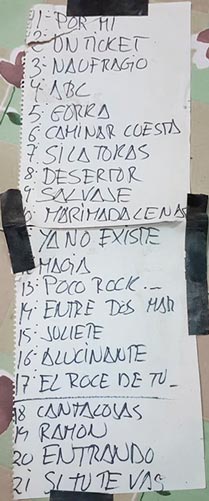 1- POR MI
2- UN TICKET
3- NAUFRAGO
4- ABC
5- GORRA
6 CAMINAR CUESTA
7- SI LA TOKAS
8- DESERTOR
9 SALVAJE
MARIMADALENA
YA NO EXISTE
MAGIA
13- POCO ROCK.-
14- ENTRE DOS MAR
15- JULIETE
16- ALUCINANTE
17- EL ROCE DE TU_
18 CANTACOSAS
19 RAMON
20 ENTRANDO
21 SI TU TE VAS